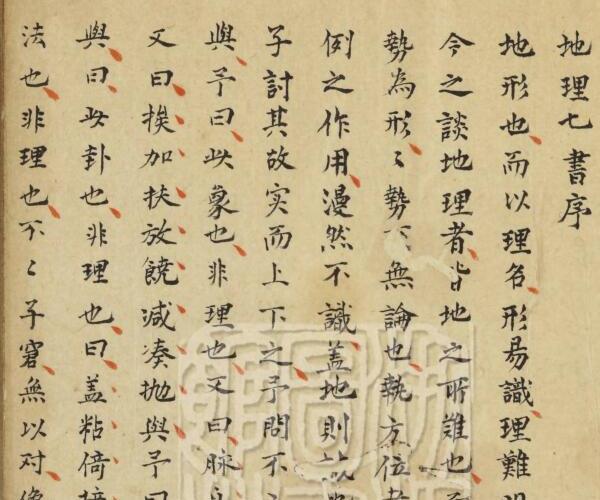 地理七書序
地形也而以理名形易識理難
今之談地理者皆地之所難也
勢為形〻勢不無論也執方位
例之作用漫然不識蓋地則
子討其故实而上下之予問不
與予曰此象也非理也又曰脉
又曰挨加扶放饒减凑抛與予曰
與曰此卦也非理也曰蓋粘倚
法也非理也不〻子窘無以对